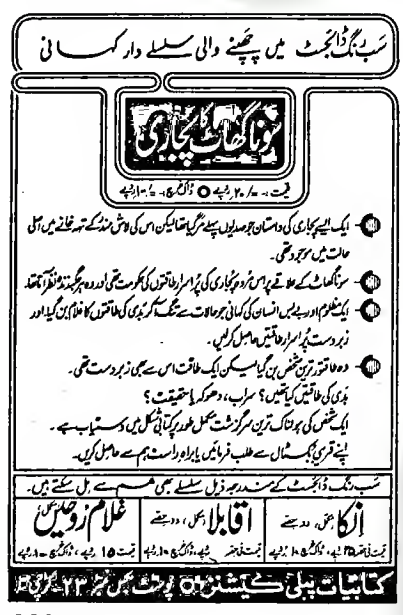 سب رنگ ڈائجسٹ میں چھپنے والی سلسلے دار کہانی
سونا گھاٹ کا پجاری
قیمت :- /۲۰ روپے ڈاک خرچ :- /۱۰ روپے
ایک ایسے پجاری کی داستان جو صدیوں پہلے مر گیا تھا لیکن اس کی لاش مندر کے تہہ خانے میں اصلی
حالت میں موجود تھی۔
سونا گھاٹ کے علاقے پر اس مردہ پجاری کی پراسرار طاقتوں کی حکومت تھی اور وہ ہر جگہ نظر آتا تھا۔
ایک مظلوم اور بے بس انسان کی کہانی جو حالات سے تنگ آکر بدی کی طاقتوں کا غلام بن گیا اور
زبردست پراسرار طاقتیں حاصل کرلیں۔
وہ طاقتور ترین شخص بن گیا لیکن ایک طاقت اس سے بھی زبردست تھی۔
بدی کی طاقتیں کیا تھیں؟ سراب، دھوکہ یا حقیقت؟
ایک شخص کی ہولناک ترین سرگزشت مکمل طور پر کتابی شکل میں دستیاب ہے۔
اپنے قریبی بک اسٹال سے طلب فرمائیں یا براہ راست ہم سے حاصل کریں۔
سب رنگ ڈائجسٹ کے مندرجہ ذیل سلسلے بھی ہم سے مل سکتے ہیں۔
انکا مکمل، دو حصے
قیمت فی حصہ روپے، ڈاک خرچ ۱۰ روپے
اقابلا مکمل، دو حصے
قیمت فی حصہ روپے، ڈاک خرچ ۱۰ روپے
غلام روحیں مکمل
قیمت ۱۵ روپے، ڈاک خرچ ۱۰ روپے
کتابیات پبلی کیشنز پوسٹ بکس نمبر ۲۳ کراچی